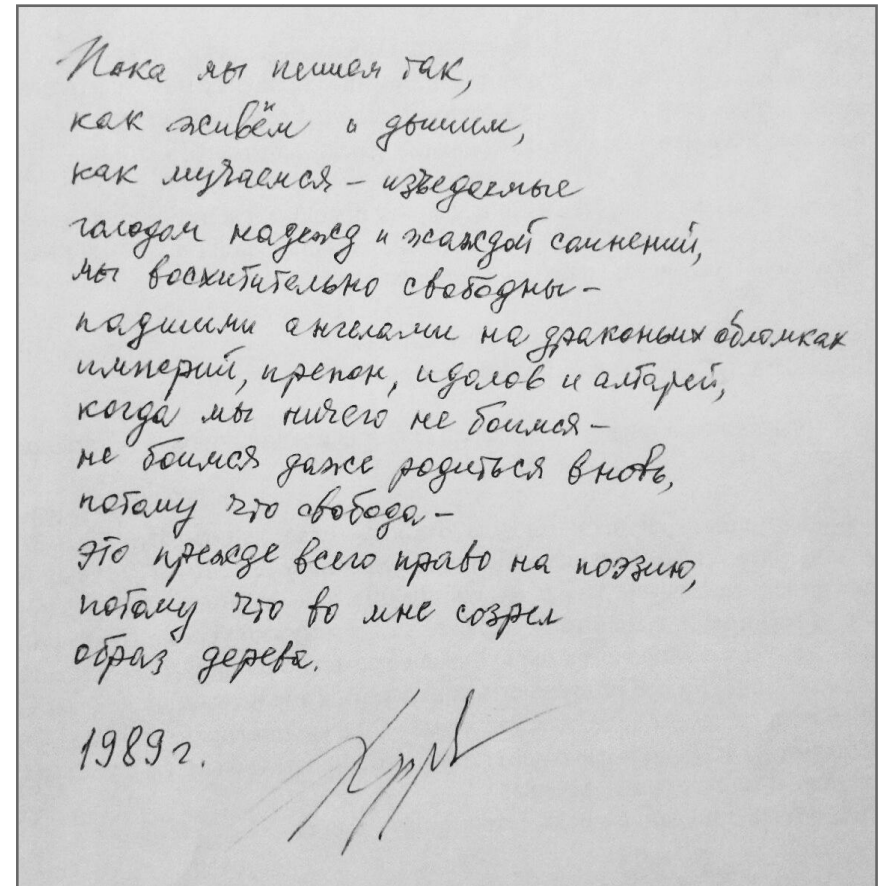 Пока мы пишем так,
как живём и дышим,
как мучаемся – изъедаемые
голодом надежд и жаждой сомнений,
мы восхитительно свободны –
падшими ангелами на драконьих обломках
империй, препон, идолов и алтарей,
когда мы ничего не боимся –
не боимся даже родиться вновь,
потому что свобода –
это прежде всего право на поэзию,
потому что во мне созрел
образ дерева.
1989 г.